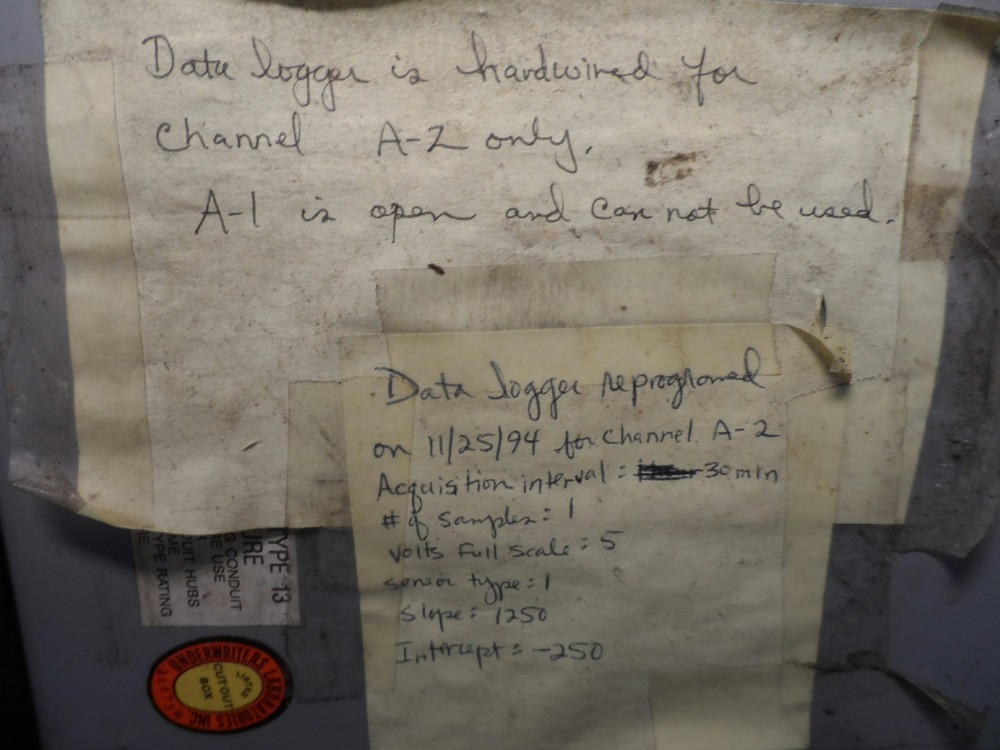 Data logger is hardwired for
Channel A-2 only.
A-1 is open and can not be used.
Data logger reprogramed
on 11/25/94 for Channel A-2
Acquisition interval: 30 min
# of samples: 1
volts full scale: 5
sensor type: 1
Slope: 1250
Intercept: -250
YPE 13
URE
G CONDUIT
RE USE
UIT HUBS
ME
YPE RATING
RE.
UNDERWRITERS LABORATORIES INC.
LISTED
CUTOUT
BOX